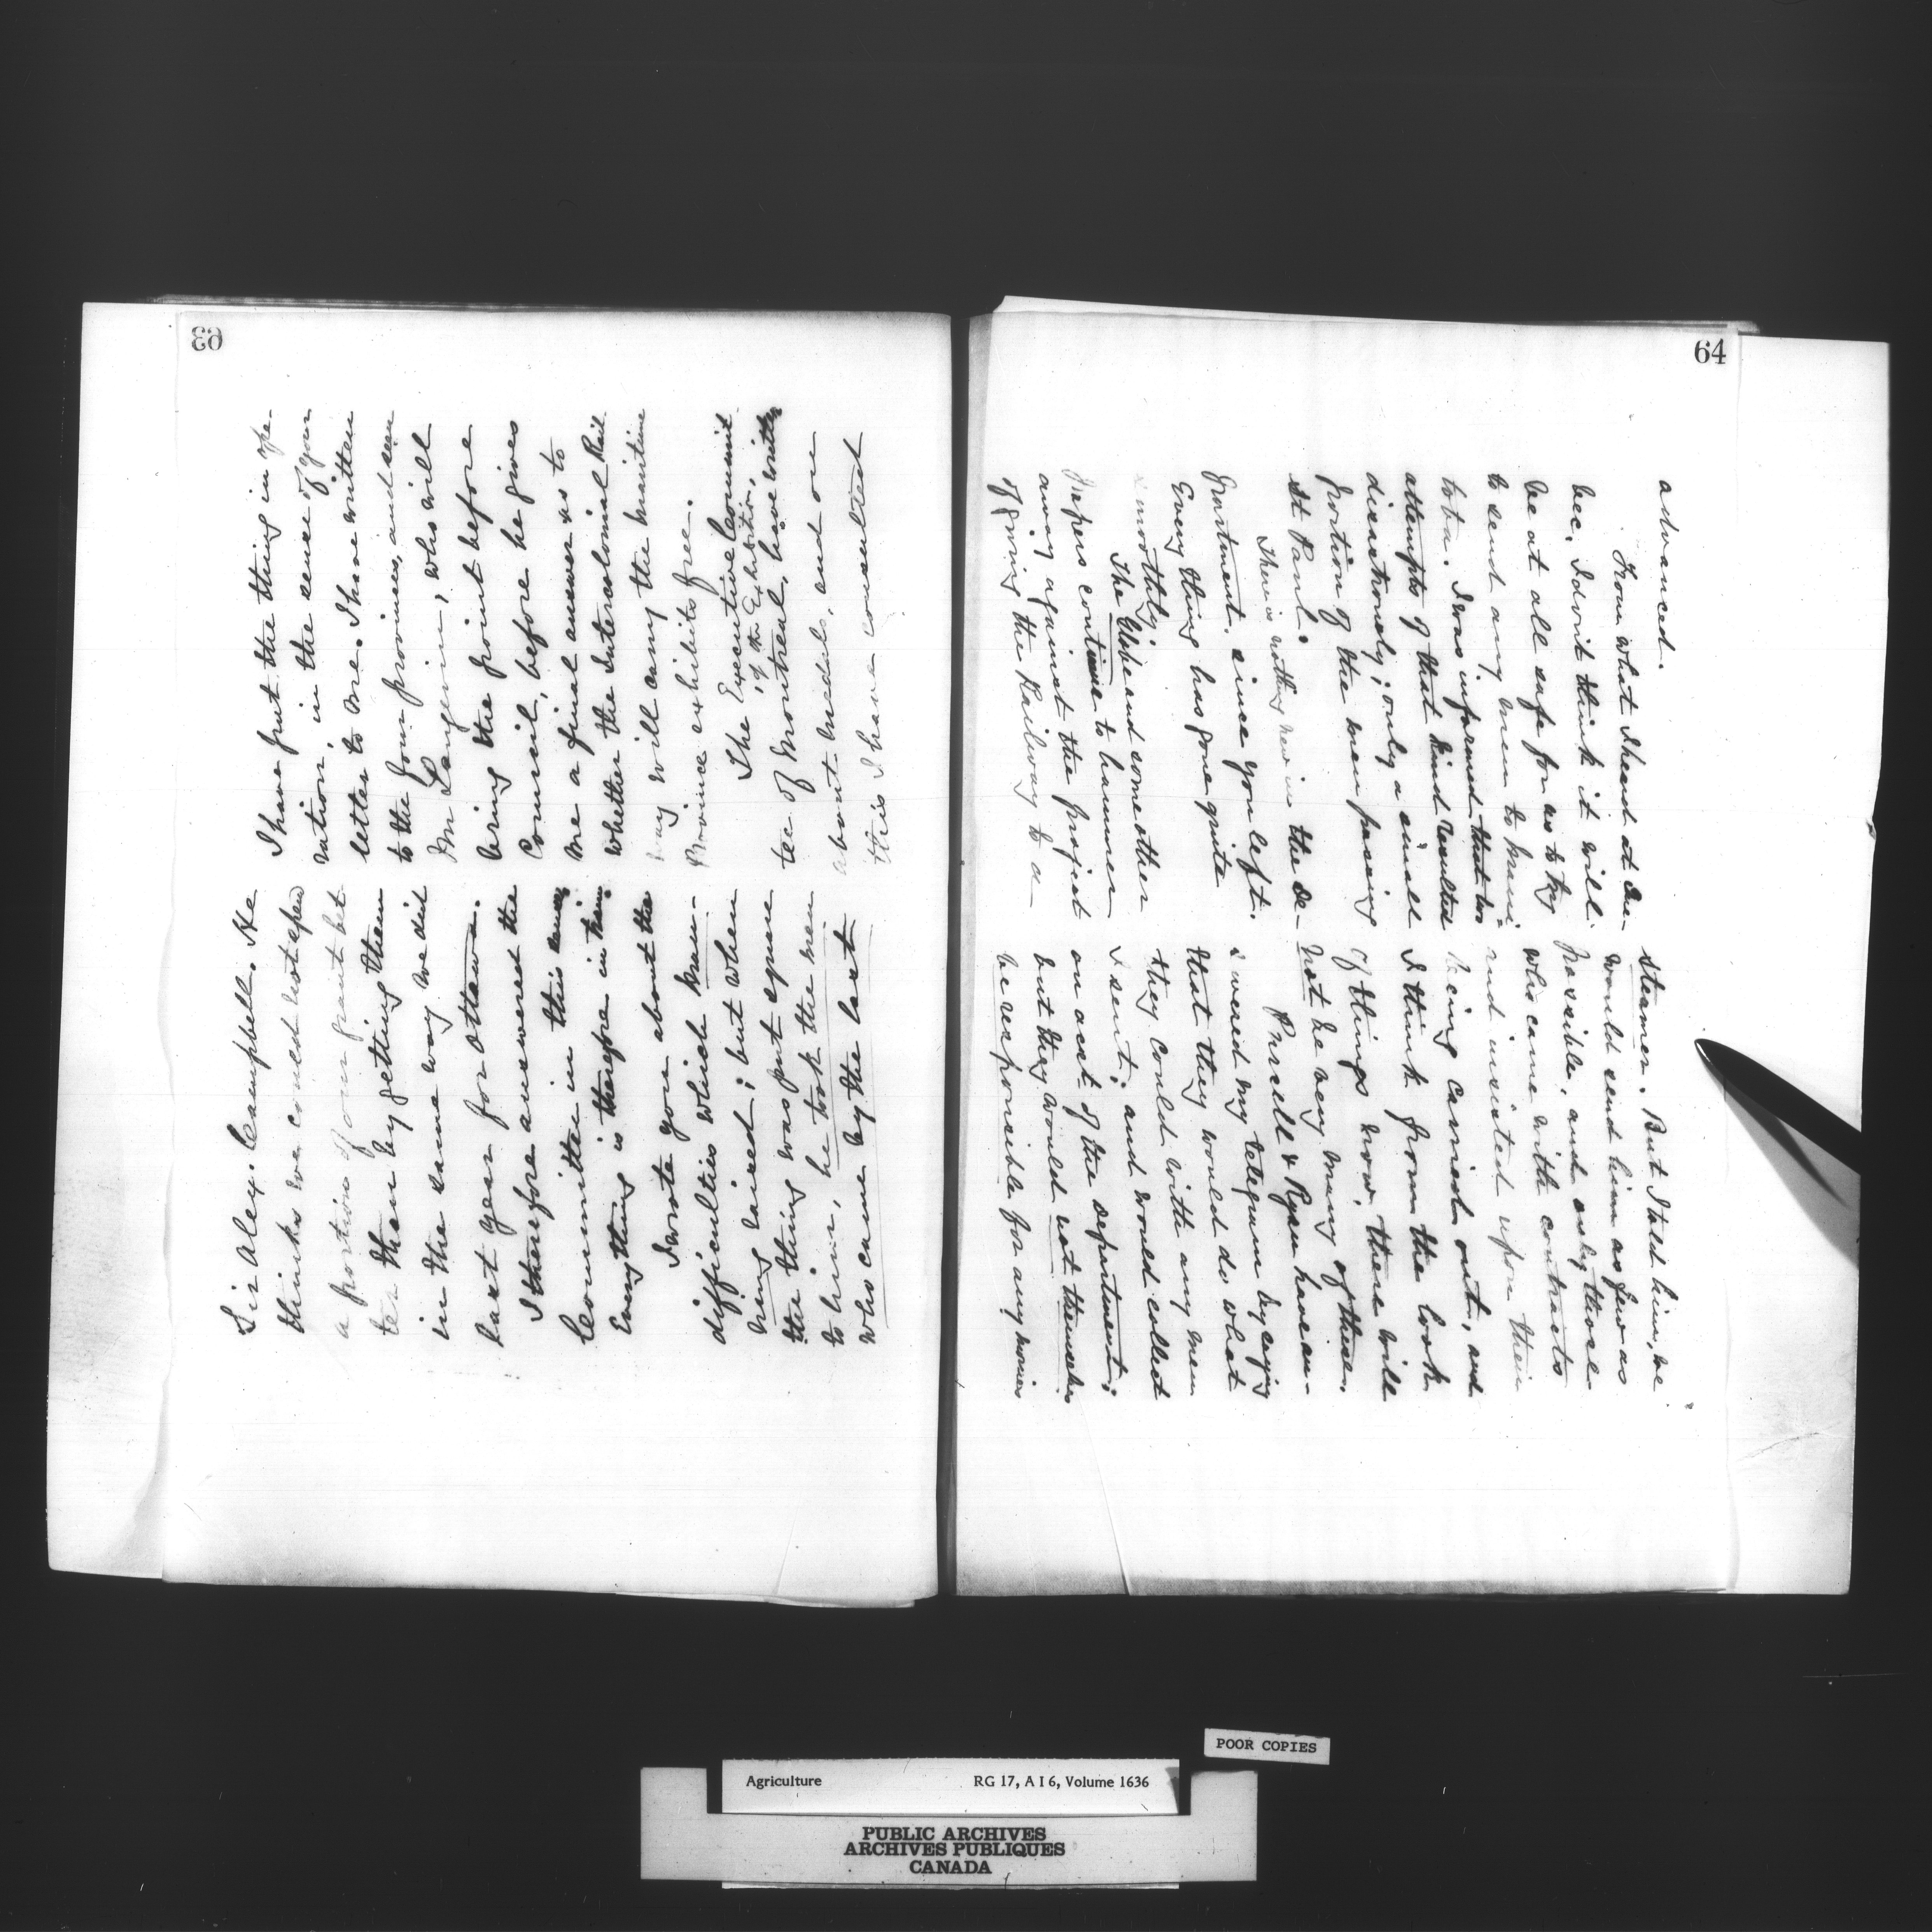 63
I have put the thing in ope-
ration, in the sense of your
letter to me. I have written
to the four provinces, and seen
Mr Langevin, who will
bring the point before
Council, before he gives
me a final answer as to
whether the Intercolonial Rail
way will carry the maritime
Province exhibits free.
The Executive Commit
of the Exhibition,
tee of Montreal, have written
about medals, and on
this I have consulted
Sir Alex. Campbell. He
thinks we could not spend
a portion of our grant bet
ter than by getting them
in the same way we did
last year for Ottawa.
I therefore answered the
Committee in this sense,
Everything is therefore in train.
I wrote you about the
difficulties which
being raised; but when
the thing was put square
to him, he took the men
who came by the last
64
steamer. But I told him, he
would send him as few as
possible, and only those
who came with contracts
and insisted upon their
being carried out, and
I think from the look
of things now, there will
not be very many of these.
Pursell & Ryan have an-
swered my telegram by saying
that they would do what
they could with any men
I sent; and would collect
on acct of the department;
but they would not themselves
be responsible for any monies
advanced.
From what I heard at Que-
bec, I don't think it will
be at all safe for us to try
to send any men to Mani
toba. I was informed that two
attempts of that kind resulted
disastrously; only a small
portion of the men passing
St Paul.
There is nothing new in the De-
partment, since you left.
Every thing has gone quite
smoothly.
The Globe and some other
Papers continue to hammer
away against the project
of giving the Railway to a
POOR COPIES
Agriculture RG 17, A I 6, Volume 1636
PUBLIC ARCHIVES
ARCHIVES PUBLIQUES
CANADA